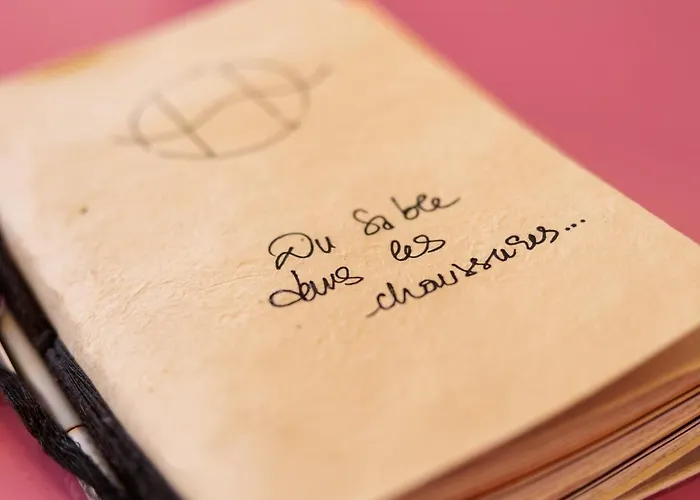 Du sable
dans les
chaussures...